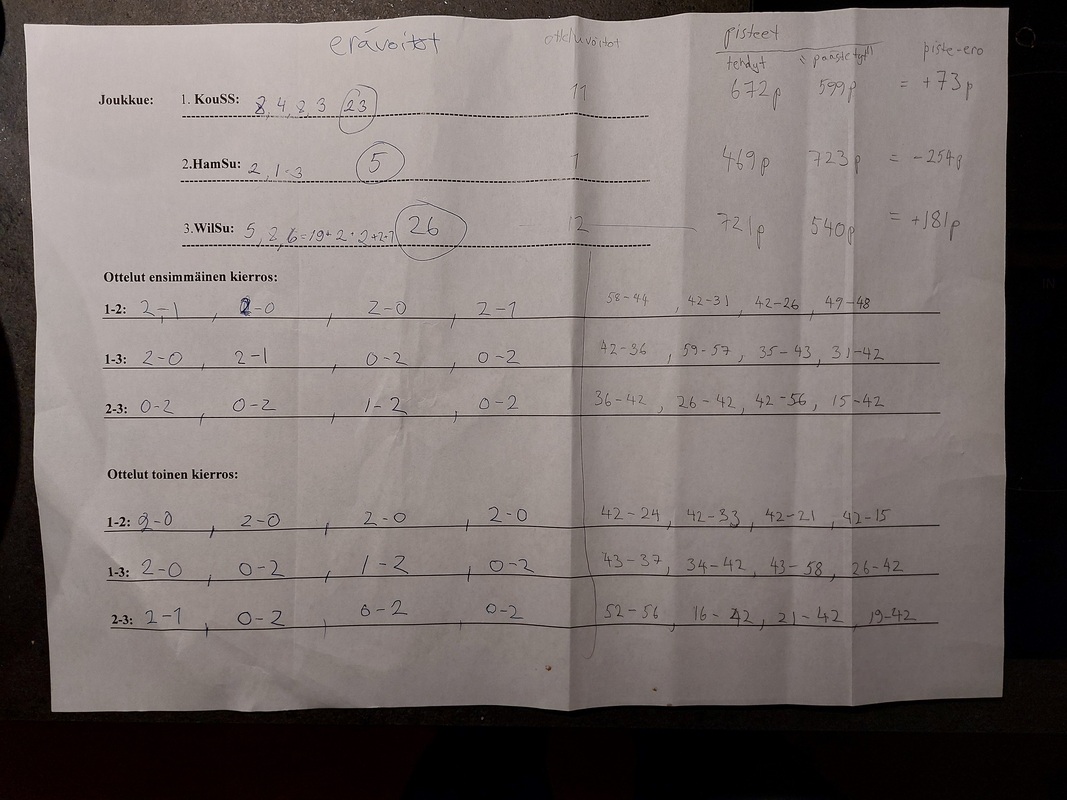 erävoitot otteluvoitot pisteet
tehdyt "päästetyt" piste-ero
Joukkue: 1. KouSS: 8, 4, 8, 3 23 11 672p 599p = +73p
2.HamSu: 2, 1=3 5 1 469p 723p = -254p
3.WilSu: 5, 8, 6=19+2+2+2+1 26 12 721p 540p = +181p
Ottelut ensimmäinen kierros:
1-2: 2-1, 2-0, 2-0, 2-1 58-44, 42-31, 42-26, 49-48
1-3: 2-0, 2-1, 0-2, 0-2 42-36, 59-57, 35-43, 31-42
2-3: 0-2, 0-2, 1-2, 0-2 36-42, 26-42, 42-56, 15-42
Ottelut toinen kierros:
1-2: 2-0, 2-0, 2-0, 2-0 42-24, 42-33, 42-21, 42-15
1-3: 2-0, 0-2, 1-2, 0-2 43-37, 34-42, 43-58, 26-42
2-3: 2-1, 0-2, 0-2, 0-2 52-56, 16-42, 21-42, 19-42